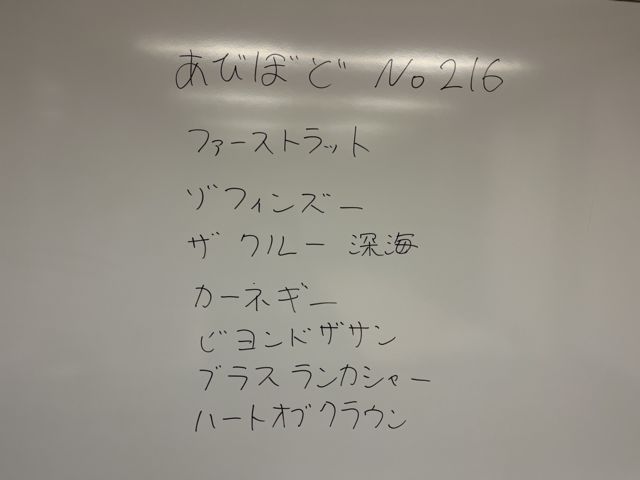 あびぼど No216
ファーストラット
ゾフィンズー
ザ クルー 深海
カーネギー
ビヨンドザサン
ブラス ランカシャー
ハートオブクラウン